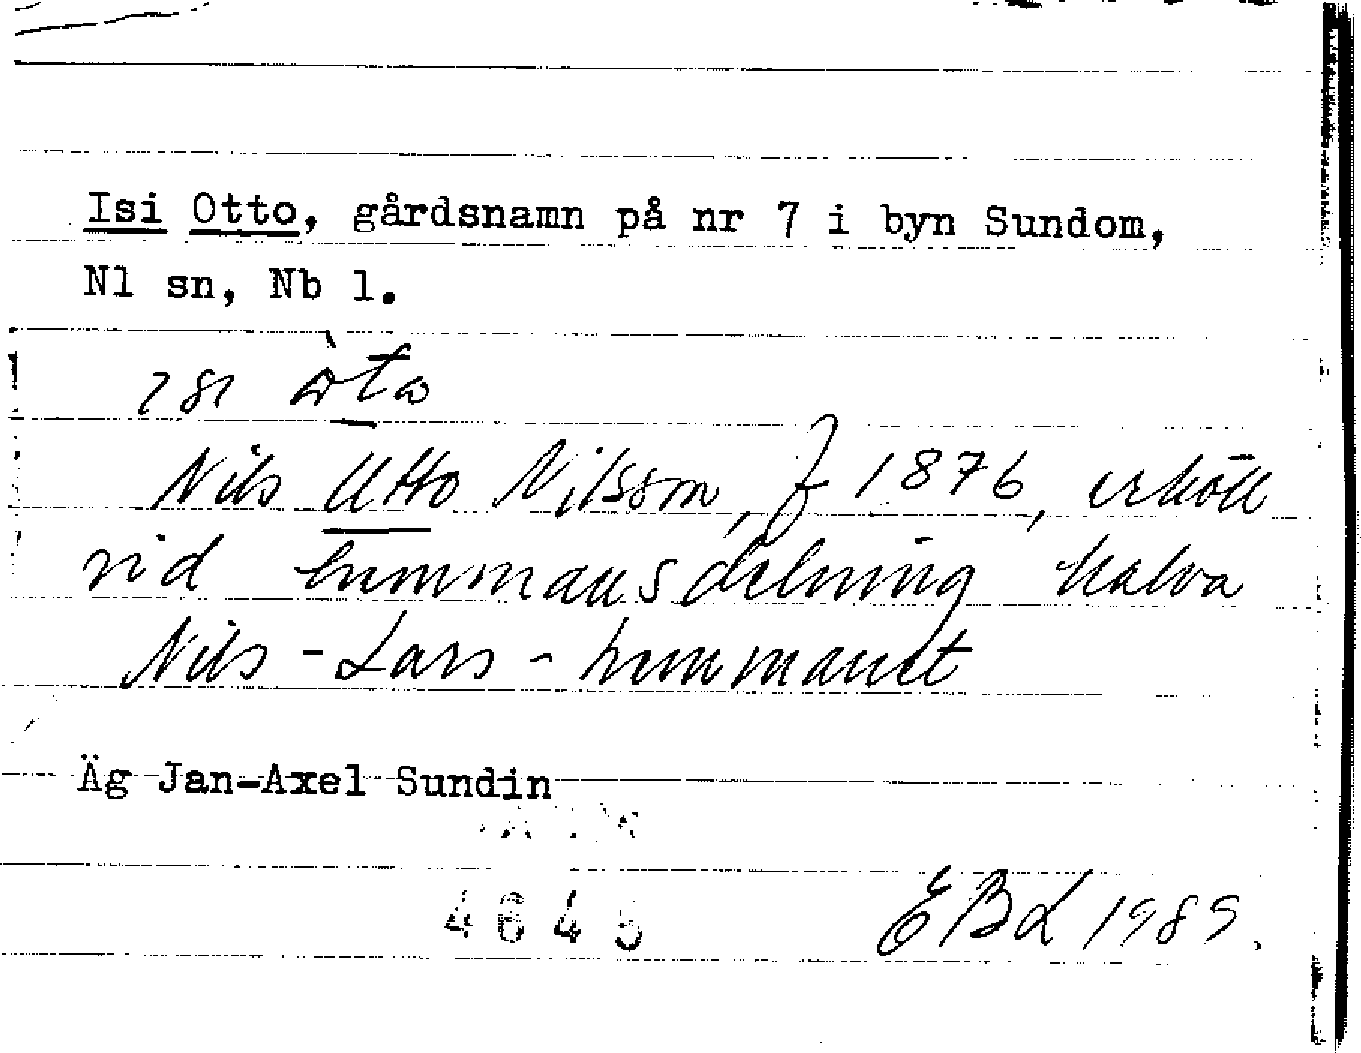 Isi Otto, gårdsnamn på nr 7 i byn Sundom,
Nl sn, Nb l.
Nils Otto Nilsson, f 1876, erhöll
vid hemmansdelning halva
Nils-Lars-hemmanet
Äg Jan-Axel Sundin
4645
EBL 1985.